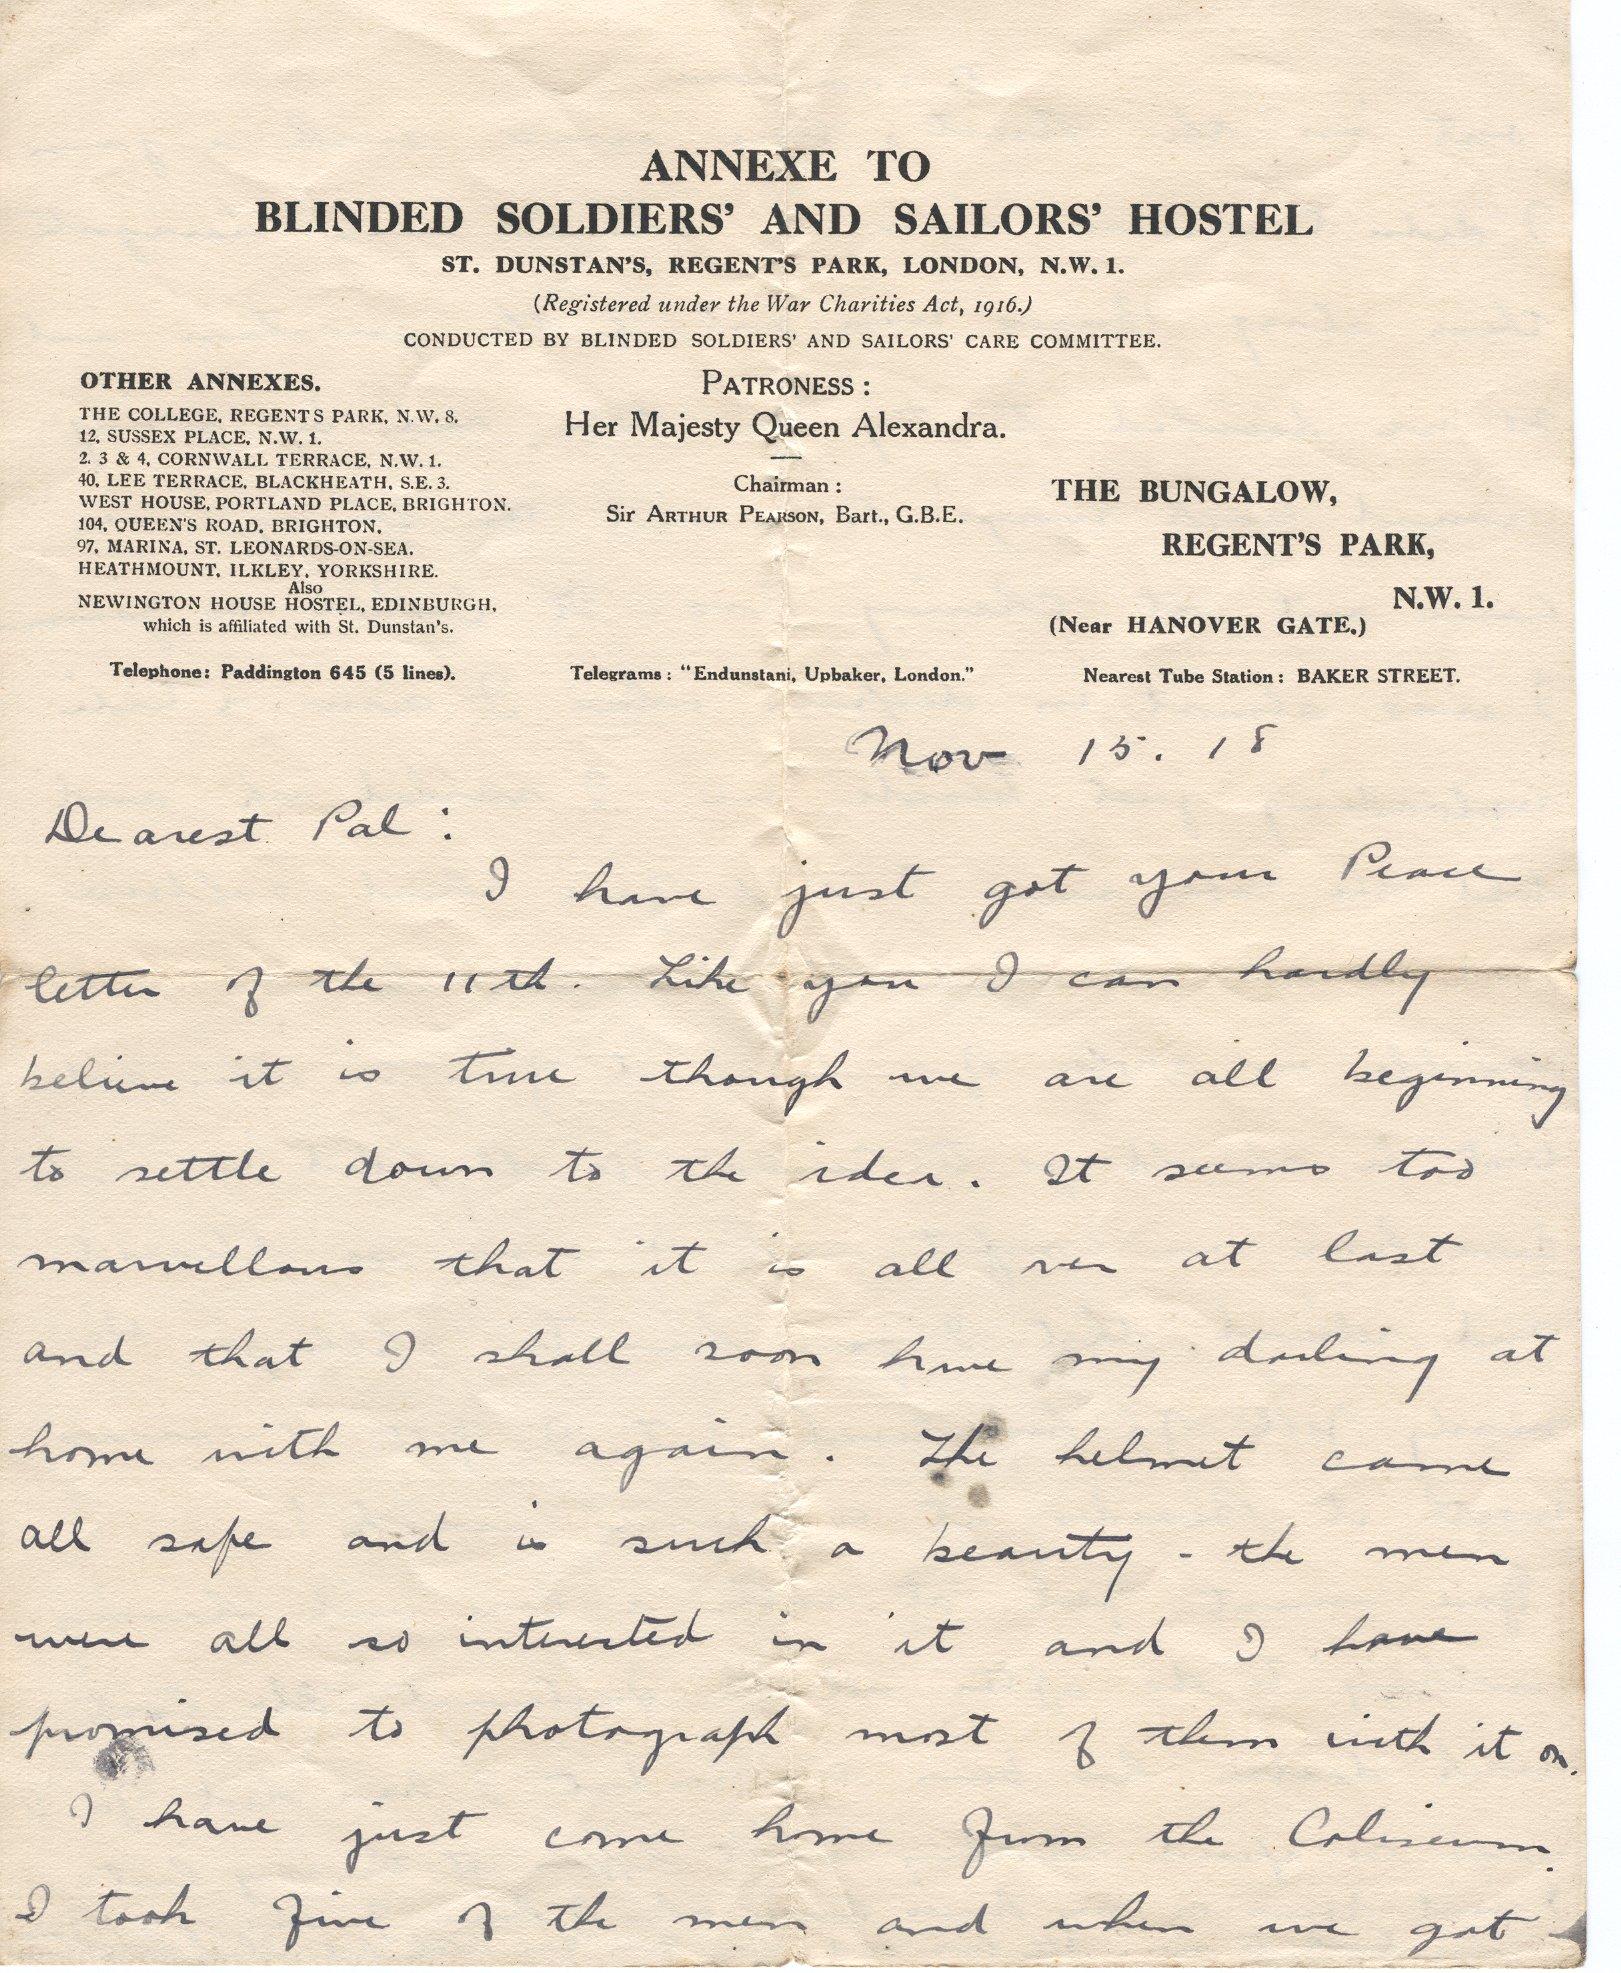 ANNEXE TO
BLINDED SOLDIERS' AND SAILORS' HOSTEL
ST. DUNSTAN'S, REGENT'S PARK, LONDON, N.W. 1.
(Registered under the War Charities Act, 1916.)
CONDUCTED BY BLINDED SOLDIERS' AND SAILORS' CARE COMMITTEE.
OTHER ANNEXES.
THE COLLEGE, REGENTS PARK, N.W. 8.
12, SUSSEX PLACE, N.W. 1.
2. 3 & 4, CORNWALL TERRACE, N.W. 1.
40, LEE TERRACE, BLACKHEATH, S.E. 3.
WEST HOUSE, PORTLAND PLACE, BRIGHTON.
104, QUEEN'S ROAD, BRIGHTON.
97, MARINA, ST. LEONARDS-ON-SEA.
HEATHMOUNT, ILKLEY, YORKSHIRE.
Also
NEWINGTON HOUSE HOSTEL, EDINBURGH,
which is affiliated with St. Dunstan's.
PATRONESS:
Her Majesty Queen Alexandra.
Chairman:
Sir ARTHUR PEARSON, Bart., G.B.E.
THE BUNGALOW,
REGENT'S PARK,
N.W. 1.
(Near HANOVER GATE.)
Telephone: Paddington 645 (5 lines).
Telegrams: "Endunstani, Upbaker, London."
Nearest Tube Station: BAKER STREET.
Nov 15. 18
Dearest Pal:
I have just got your Peace
letter of the 11th. Like you I can hardly
believe it is true though we are all beginning
to settle down to the idea. It seems too
marvellous that it is all over at last
and that I shall soon have my darling at
home with me again. The helmet came
all safe and is such a beauty - the men
were all so interested in it and I have
promised to photograph most of them with it on.
I have just come home from the Coliseum.
I took five of the men and when we got